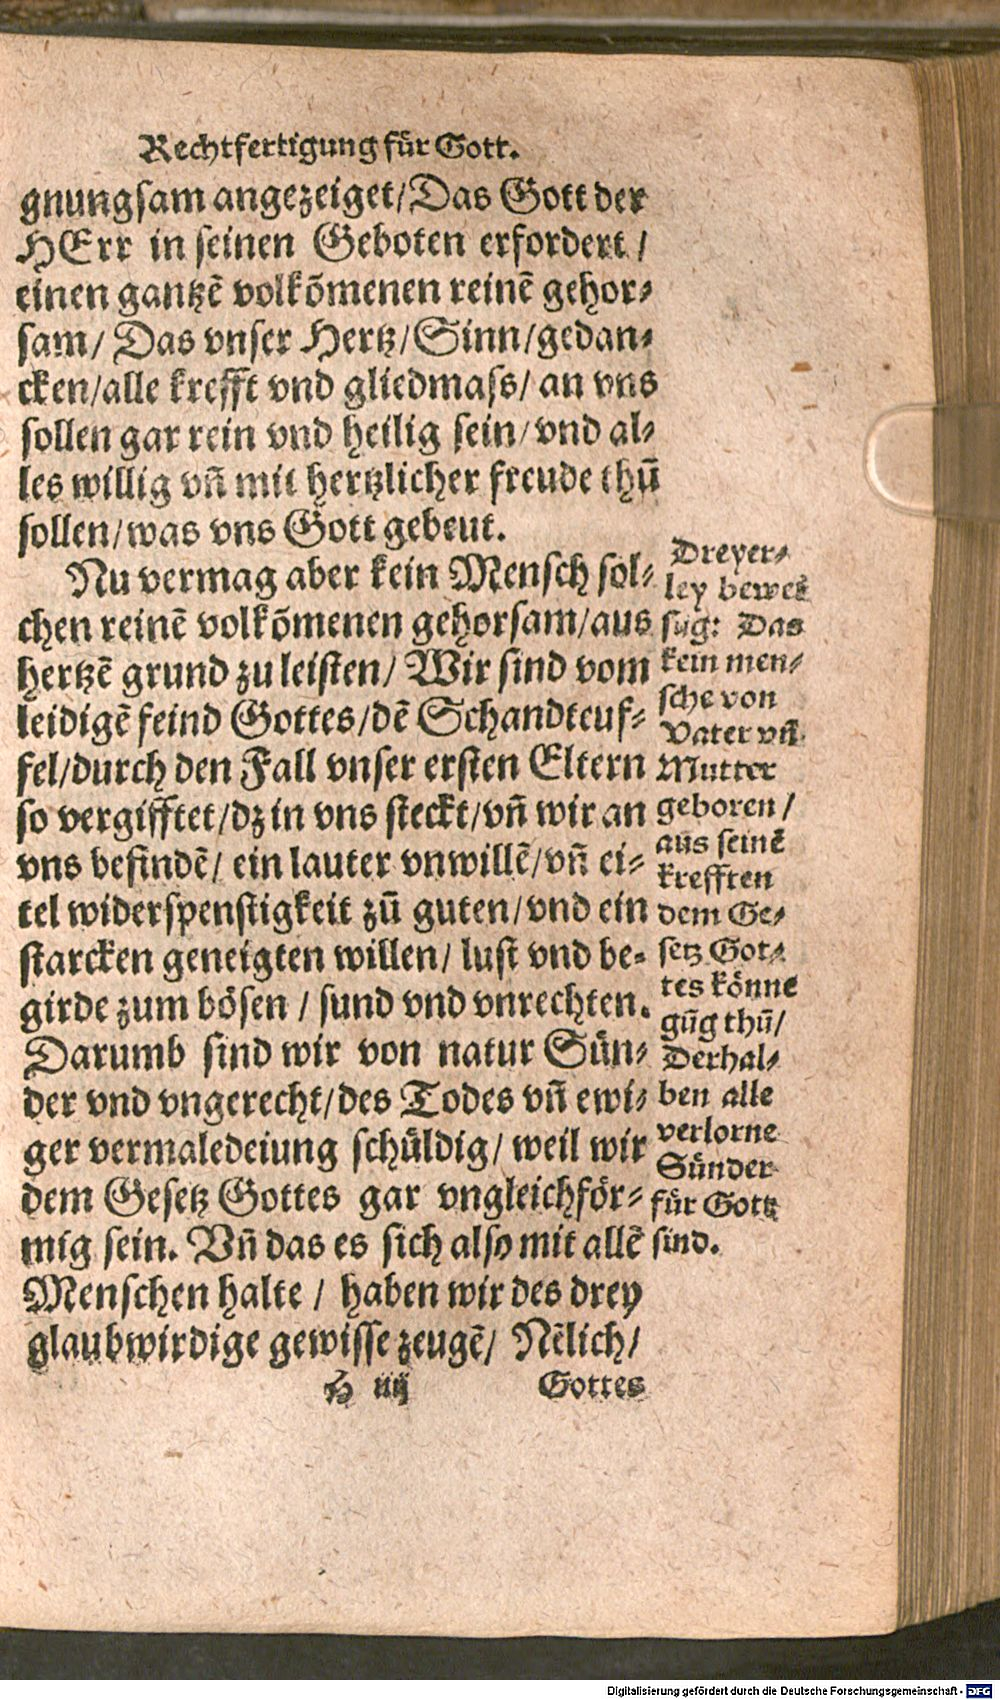 Rechtfertigung für Gott.
gnungsam angezeiget/Das Gott der
HErr in seinen Geboten erfordert/
einen gantzẽ volkõmenen reinẽ gehor⸗
sam/ Das vnser Hertz/Sinn/gedan⸗
cken/alle krefft vnd gliedmass/ an vns
sollen gar rein vnd heilig sein/vnd al⸗
les willig vñ mit hertzlicher freude thũ
sollen/was vns Gott gebeut.
Nu vermag aber kein Mensch sol⸗
chen reinẽ volkõmenen gehorsam/aus
hertzẽ grund zu leisten/ Wir sind vom
leidigẽ feind Gottes/dẽ Schandteuf⸗
fel/durch den Fall vnser ersten Eltern
so vergifftet/dz in vns steckt/vñ wir an
vns befindẽ/ ein lauter vnwillẽ/vñ ei⸗
tel widerspenstigkeit zũ guten/vnd ein
starcken geneigten willen/ lust vnd be⸗
girde zum bösen / sund vnd vnrechten.
Darumb sind wir von natur Sün⸗
der vnd vngerecht/des Todes vñ ewi⸗
ger vermaledeiung schüldig/ weil wir
dem Gesetz Gottes gar vngleichför⸗
mig sein. Vñ das es sich also mit allẽ
Menschen halte / haben wir des drey
glaubwirdige gewisse zeugẽ/ Nẽlich/
H iiij Gottes
Dreyer⸗
ley bewei
sũg: Das
kein men⸗
sche von
Vater vñ
Mutter
geboren /
aus seinẽ
krefften
dem Ge⸗
setz Got⸗
tes könne
gũg thũ/
Derhal⸗
ben alle
verlorne
Sünder
für Gott
sind.
Digitalisierung gefördert durch die Deutsche Forschungsgemeinschaft - DFG